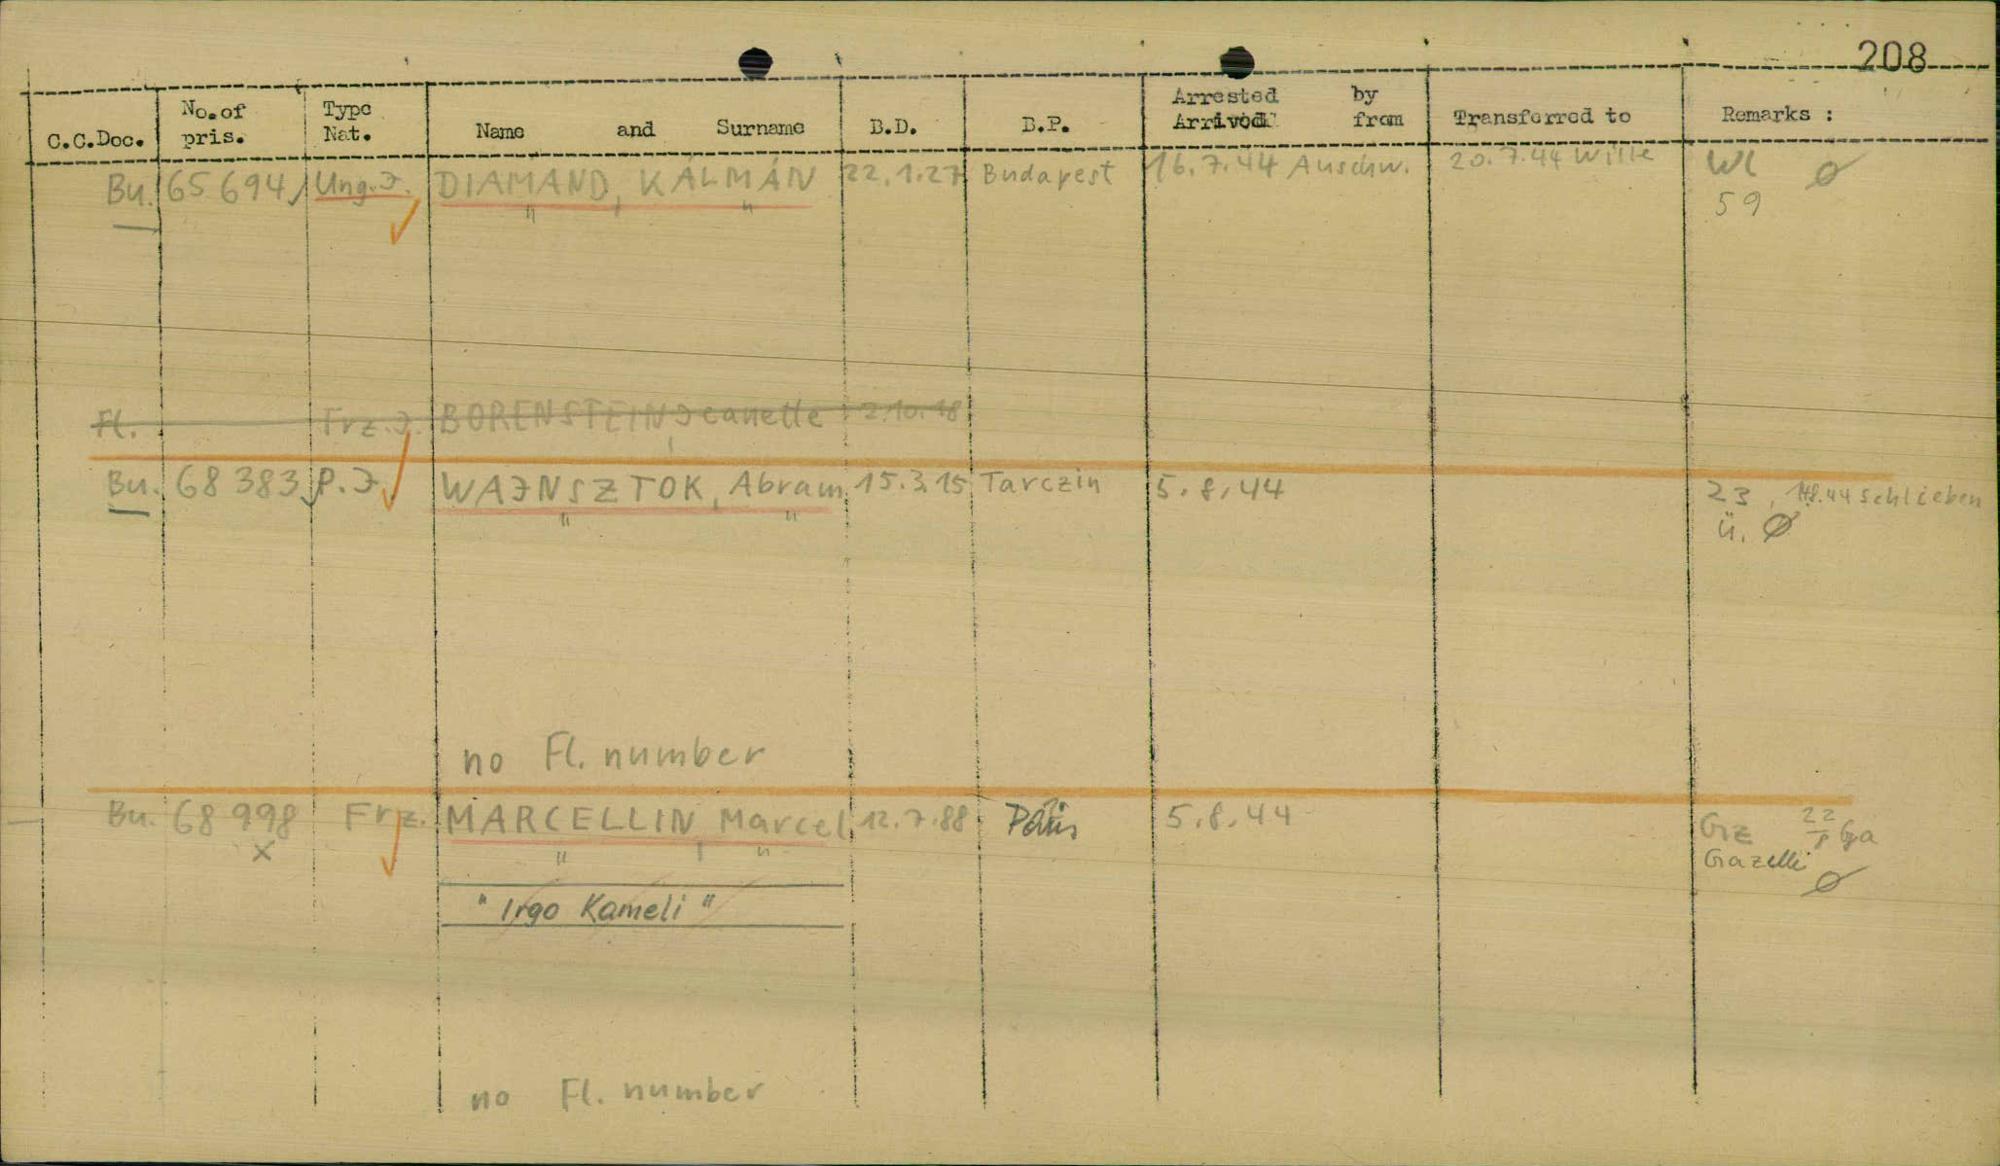 208
C.C.Doc. No. of pris. Type Nat. Name and Surname B.D. B.P. Arrested by Arrived from Transferred to Remarks :
Bu. 65 694 Ung. J. DIAMAND, KÁLMÁN 22.1.27 Budapest 16.7.44 Auschw. 20.7.44 Wille Wl Ø
59
Fl. Frz. J. BORENSTEIN, Jeanette 2.10.18
Bu. 68 383 P.J. WAJNSZTOK, Abram 15.3.15 Tarczin 5.8.44 23, schlieben
ü. Ø
no Fl. number
Bu. 68 998 Frz. MARCELLIN, Marcel 12.7.88 Paris 5.8.44 22 Ga
x Gazelli Ø
" Irgo Kameli "
no Fl. number